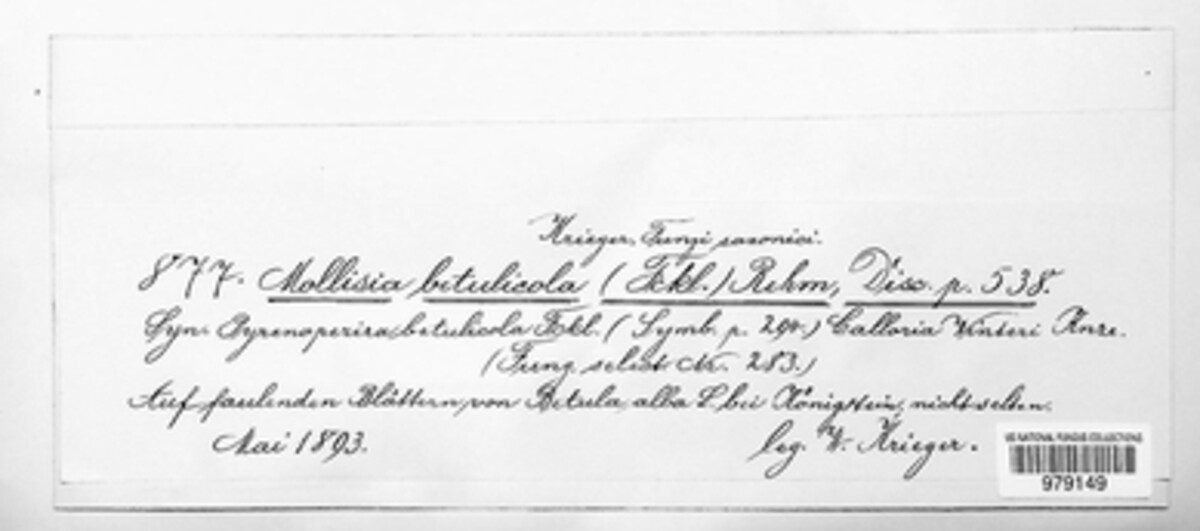 Krieger, Fungi saxonici.
877. Mollisia betulicola (Fckl.) Rehm, Disc. p. 538.
Syn. Pyrenopeziza betulicola Fckl. (Symb. p. 294.) Calloria Winteri Anze.
(Fung. select Nr. 283.)
Auf faulenden Blättern von Betula alba L. bei Königstein, nicht selten.
Mai 1893.
leg. W. Krieger.
US NATIONAL FUNGUS COLLECTIONS
979149